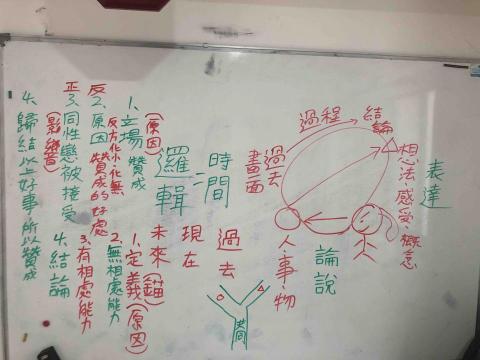 表達
想法感受、概念
結論
過程
過去
畫面
人、事、物
論說
時間
=
邏輯
過去
現在
未來
1.定義(原因)
(錨)
2.無相處能力
3.有相處能力
4.結論
共同
(原因)
1.立場 贊成
反方化小、化無
2.原因 贊成的好處
反
正
3.同性戀被接受
(影響)
4.歸結以上好事所以贊成